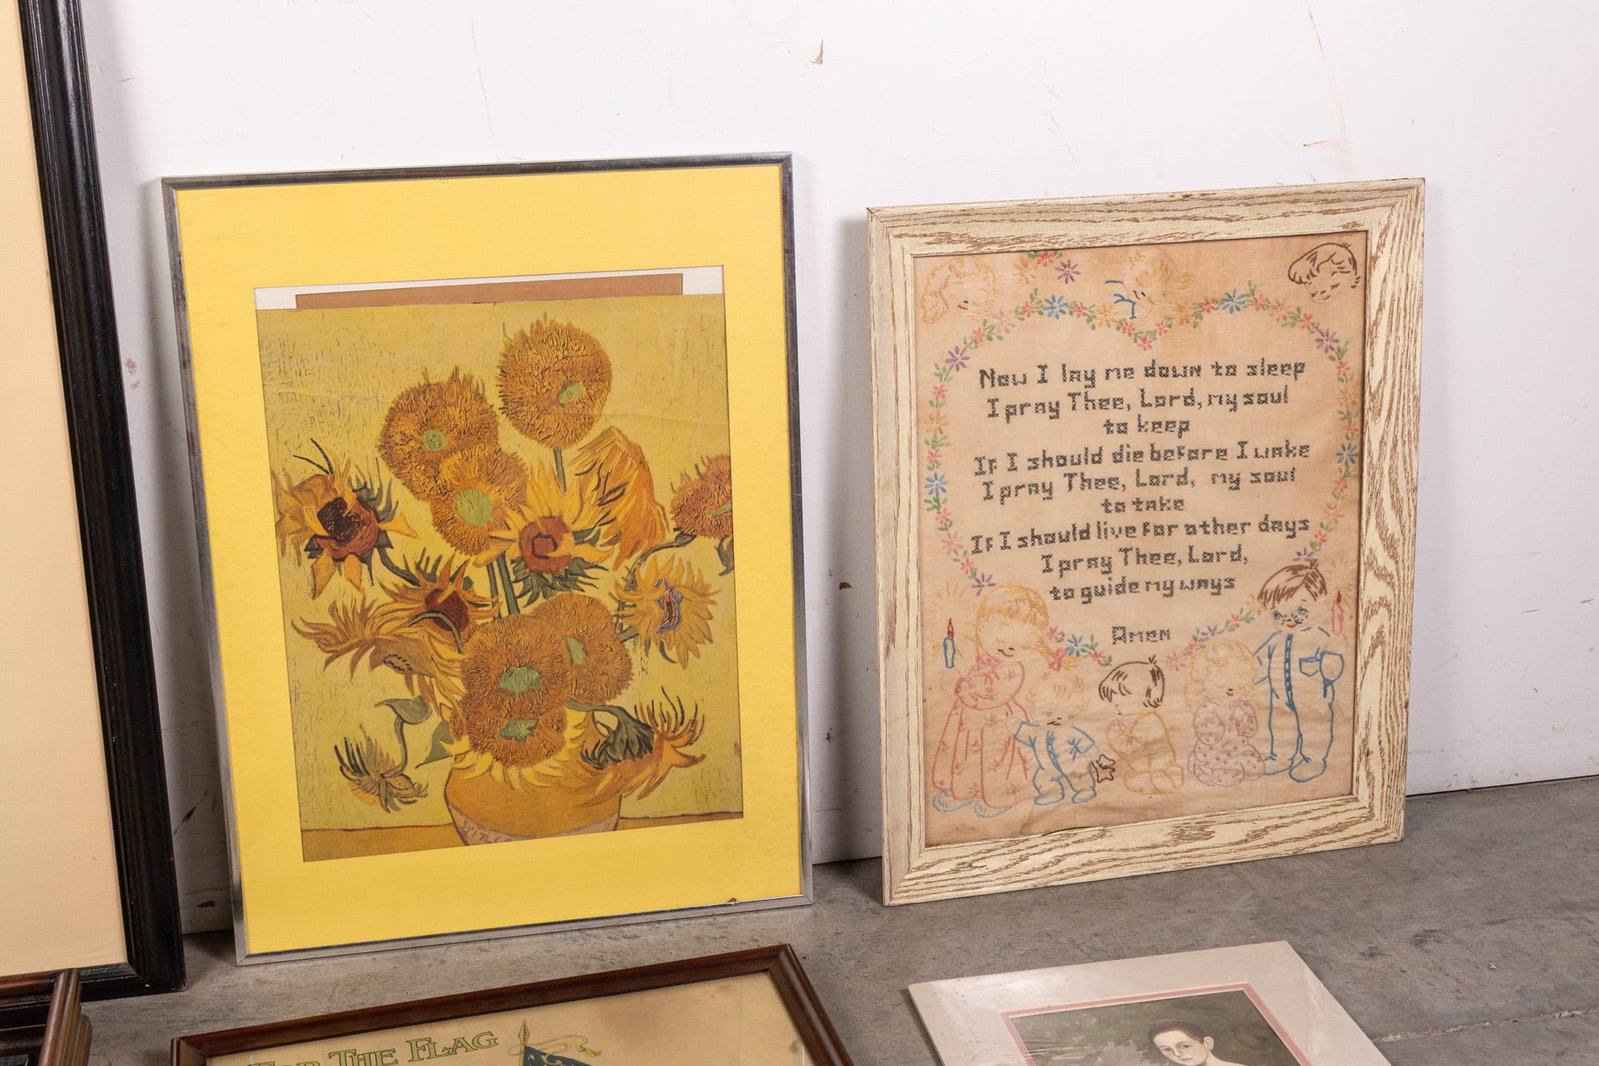 Now I lay me down to sleep
I pray Thee, Lord, my soul
to keep
If I should die before I wake
I pray Thee, Lord, my soul
to take
If I should live for other days
I pray Thee, Lord,
to guide my ways
Amen
FOR THE FLAG